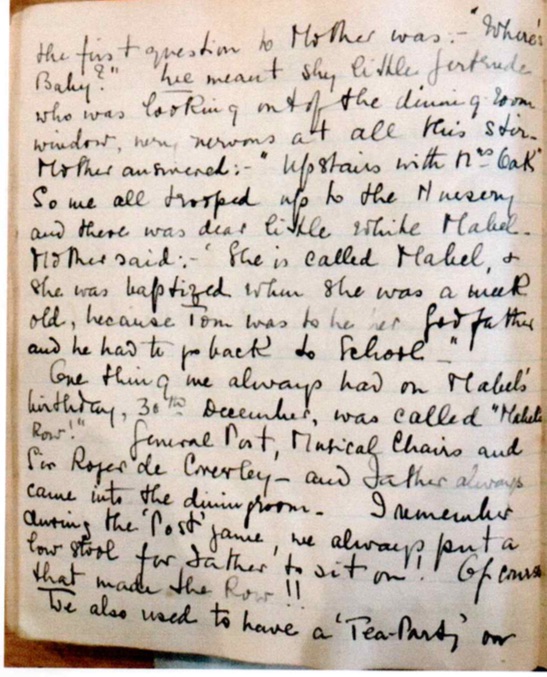 the first question to Mother was:- "Where's
Baby?" We meant shy little Gertrude
who was looking out of the dining-room
window, very nervous at all this stir.
Mother answered:- "Upstairs with Mrs Oak"
So we all trooped up to the Nursery
and there was dear little white Mabel.
Mother said:- "She is called Mabel, &
she was baptized when she was a week
old, because Tom was to be her Godfather
and he had to go back to School -"
One thing we always had on Mabel's
birthday, 30th December, was called "Mabel's
Row!" General Post, Musical Chairs and
Sir Roger de Coverley - and Father always
came into the diningroom. I remember
during the 'Post' game, we always put a
low stool for Father to sit on! Of course
that made the Row!!
We also used to have a 'Tea-Party' on